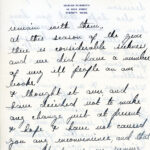 remain with them,
at this season of the year
there is considerable sickness
and we did have a number
of very ill people on my
books!
I thought it over and
have decided not to make
any change just at present
I hope I have not caused
you any inconvenience, and that